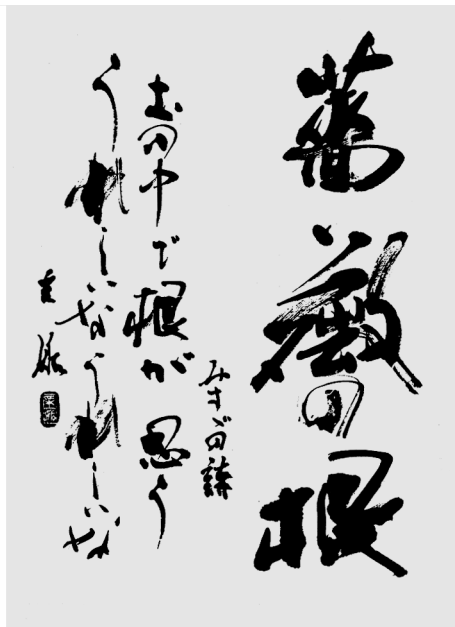 薔薇の根
みすゞの詩
土の中で根が思う
うれしいなうれしいな